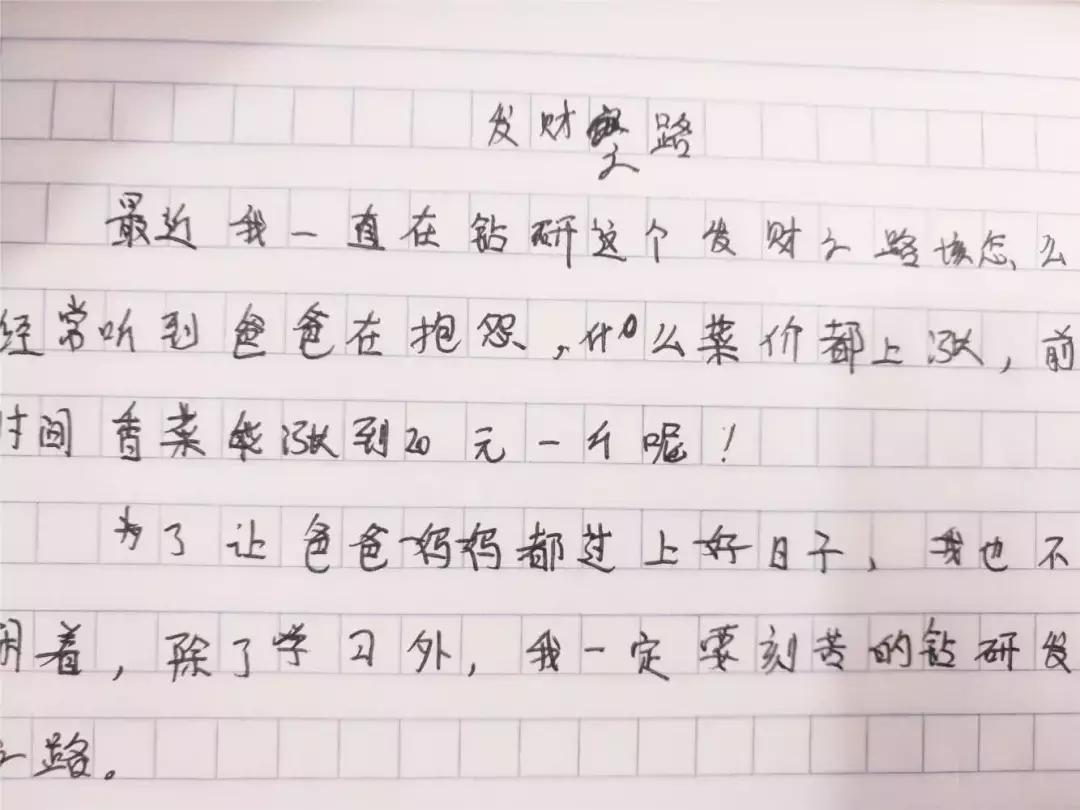 发财之路
最近我一直在钻研这个发财之路该怎么
经常听到爸爸在抱怨,什么菜价都上涨,前
时间香菜能涨到20元一斤呢!
为了让爸爸妈妈都过上好日子,我也不
闲着,除了学习外,我一定要刻苦的钻研发
之路。